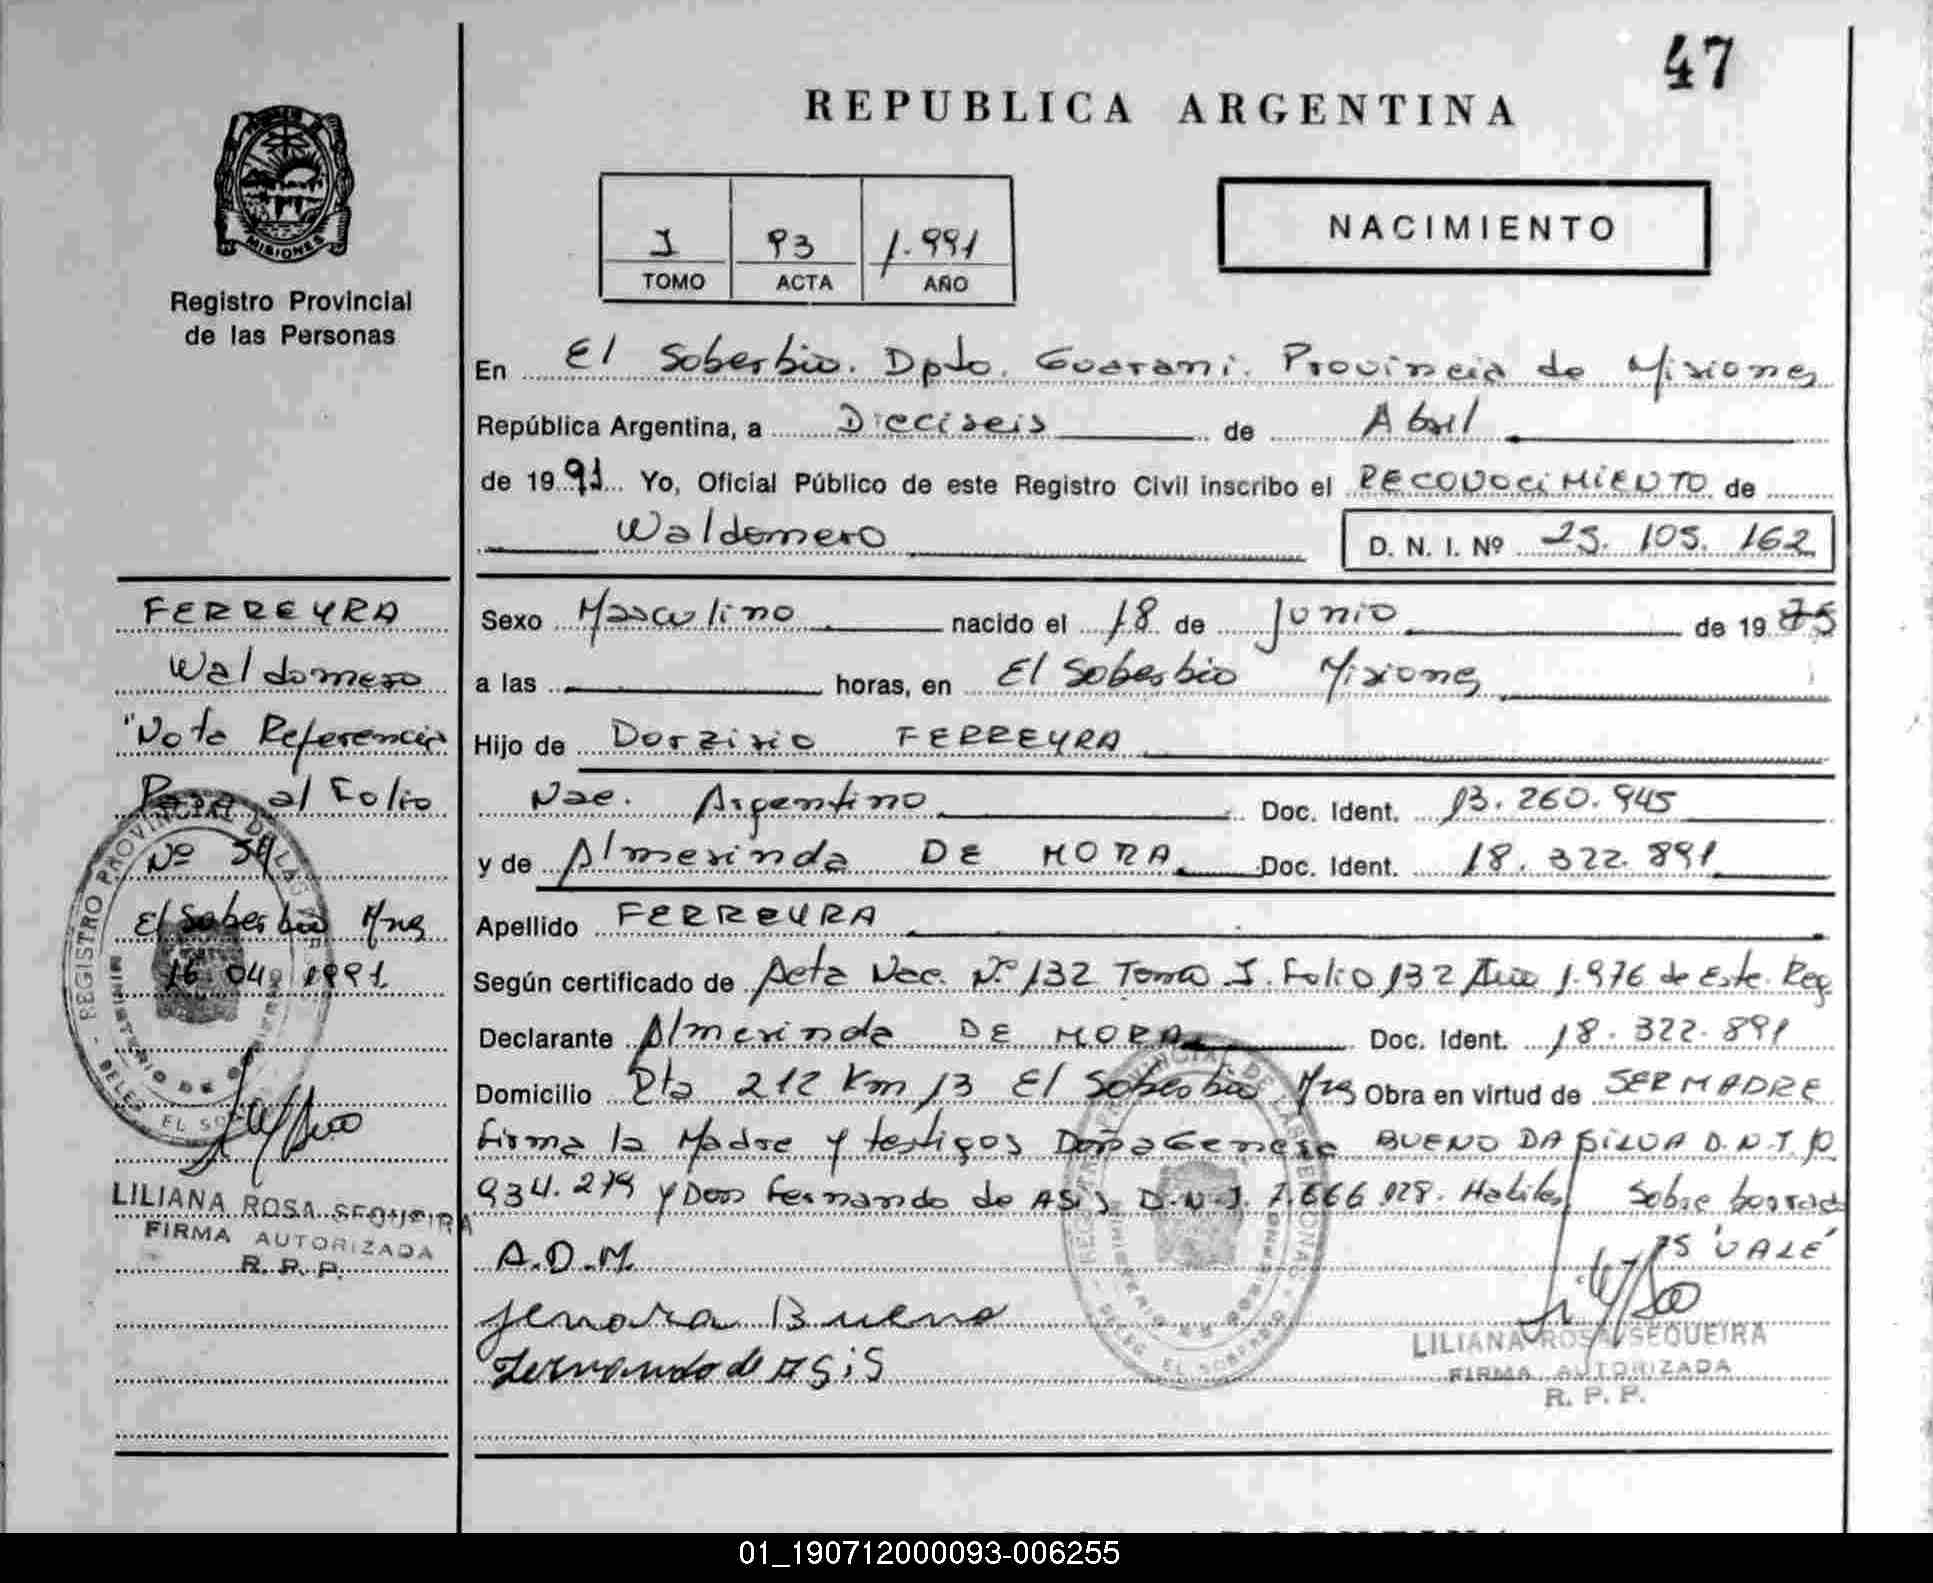 47
REPUBLICA ARGENTINA
MISIONES
Registro Provincial
de las Personas
I 93 1.991
TOMO ACTA AÑO
NACIMIENTO
En El Soberbio. Dpto. Guarani. Provincia de Misiones
República Argentina, a Dieciseis de Abril
de 1991 Yo, Oficial Público de este Registro Civil inscribo el RECONOCIMIENTO de
Waldomero D. N. I. Nº 25. 105. 162
Sexo Masculino nacido el 18 de Junio de 1975
a las horas, en El Soberbio Misiones
Hijo de Dorzirio FERREYRA
Nac. Argentino Doc. Ident. 13. 260. 945
y de Almerinda DE MORA Doc. Ident. 18. 322. 891
Apellido FERREYRA
Según certificado de Acta Nac. Nº 132 Tomo I. Folio 132 Año 1.976 de Este Reg
Declarante Almerinda DE MORA Doc. Ident. 18. 322. 891
Domicilio Rta 212 Km 13 El Soberbio Mns Obra en virtud de SER MADRE
firma la Madre y testigos Doña BUENO DA SILVA D.N.I.
934. 279 y Don Fernando de ASiS D.N.I. 7.666.028. Habiles Sobre borrado
75 VALE
A.D.M.
Jenara Bueno
Fernando de ASiS
LILIANA ROSA SEQUEIRA
FIRMA AUTORIZADA
R. P. P.
FERREYRA
Waldomero
"Nota Referencia
Pasa al Folio
Nº 59
El Soberbio Mns
16. 04. 1991
LILIANA ROSA SEQUEIRA
FIRMA AUTORIZADA
R. P. P.
01_190712000093-006255